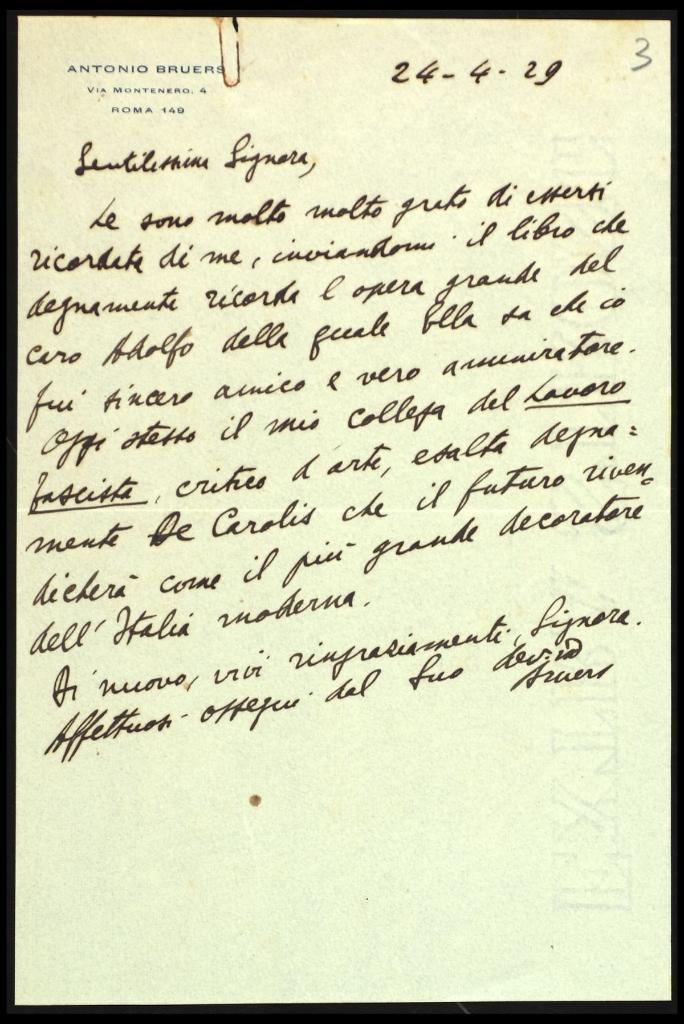 3
ANTONIO BRUERS
VIA MONTENERO, 4
ROMA 149
24-4-29
Gentilissima Signora,
Le sono molto molto grato di essersi
ricordata di me, inviandomi il libro che
degnamente ricorda l'opera grande del
caro Adolfo della quale Ella sa che io
fui sincero amico e vero ammiratore.
Oggi stesso il mio collega del Lavoro
fascista, critico d'arte, esalta degna=
mente De Carolis che il futuro riven=
dicherà come il più grande decoratore
dell'Italia moderna.
Di nuovo, vivi ringraziamenti, Signora.
Affettuosi ossequi dal Suo dev.mo
Bruers